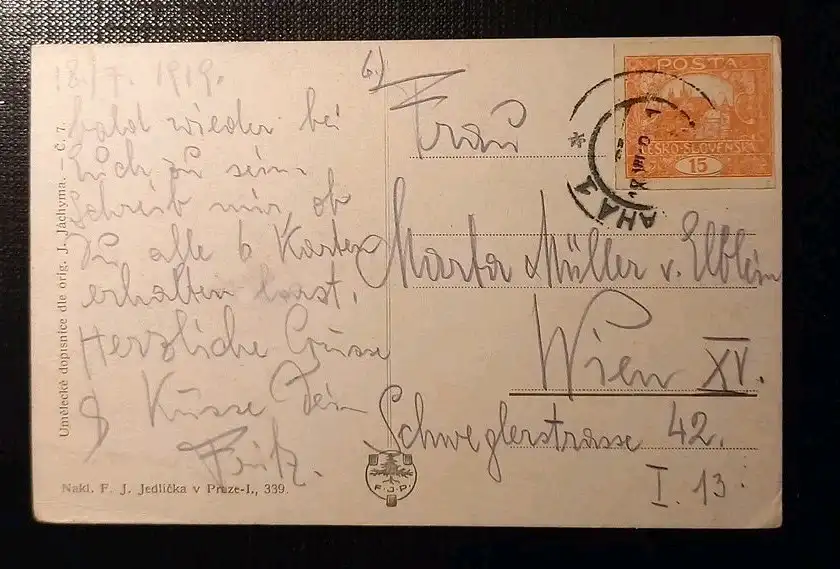 18./7. 1919.
bald wieder bei
Euch zu sein.
Schreib mir, ob
Du alle 6 Karten
erhalten hast.
Herzliche Grüsse
& Küsse Dein
Fritz.
6.)
Frau
Marta Müller v. Elblein
Wien XV.
Schweglerstrasse 42.
I. 13.
POŠTA
ČESKO-SLOVENSKÁ
15
PRAHA 1
Umělecké dopisnice dle orig. J. Jáchyma. – Č. 7.
Nakl. F. J. Jedlička v Praze-I., 339.
F. J. P.